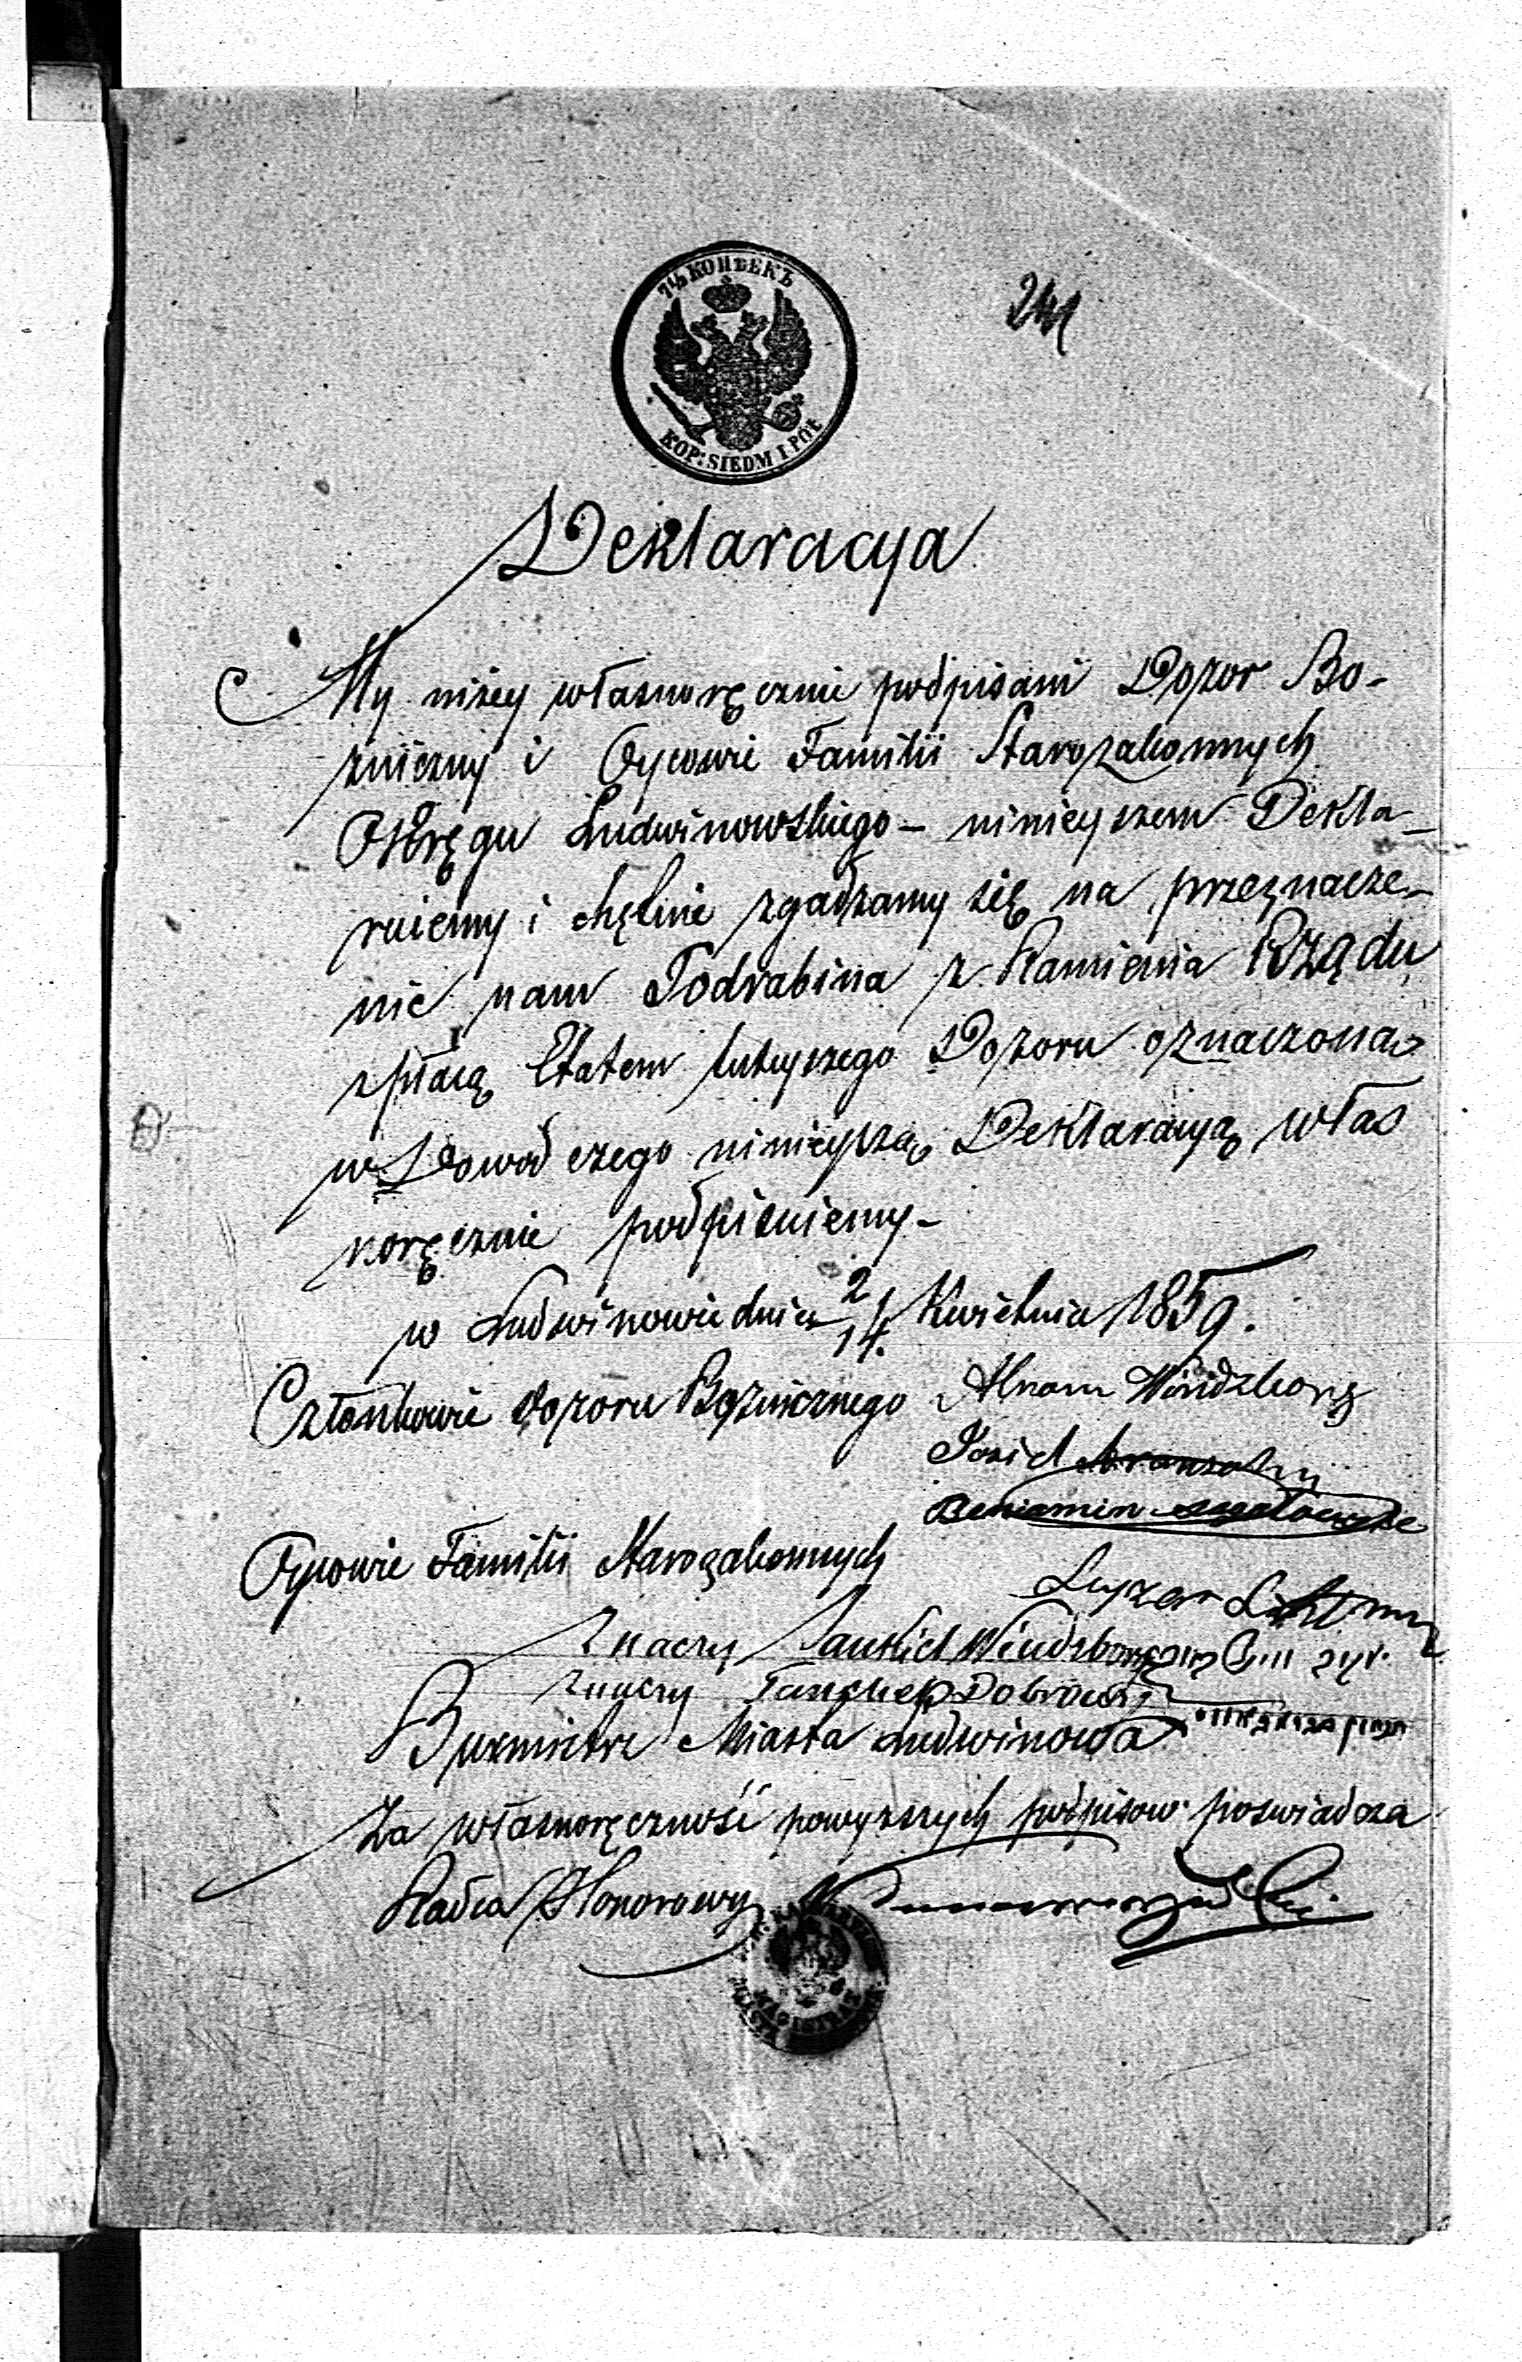 7½ КОПѢЕКЪ
KOP: SIEDM I PÓŁ
241
Deklaracya
My niżey własnoręcznie podpisani Dozor Bo-
zniczny i Oycowie Familii Starozakonnych
Okręgu Ludwinowskiego - ninieyszem Dekla-
ruiemy i chętnie zgadzamy się na przeznacze-
nie nam Podrabina z Ramienia Rządu
z płacą Etatem tuteyszego Dozoru oznaczoną
w Dowod czego ninieyszą Deklaracyą włas
noręcznie podpisuiemy-
w Ludwinowie dnia 2/14. Kwietnia 1859.
Członkowie Dozoru Bożnicznego Abram Windzberg
Josiel
Beniamin
Oycowie Familii Starozakonnych
Leyzer
Znaczy Jankiel Windzberg
Znaczy Tanchel Dobrowski
Burmistrz Miasta Ludwinowa
Za własnoręczność powyzszych podpisow poswiadcza
Radca Honorowy
MAGISTRAT